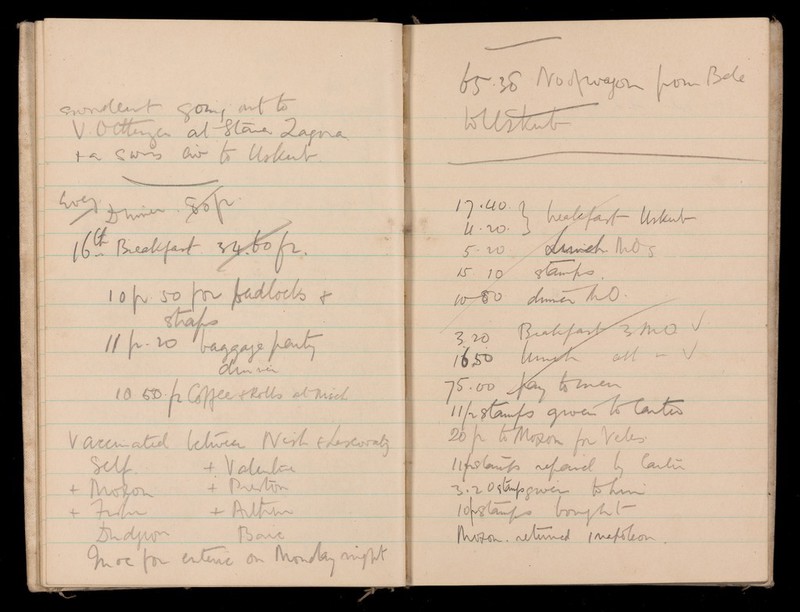 going out to
V. Oettinger at Stara Zagora
+ a Swiss to Uskub.
Dinner 80 fr.
16th Breakfast 34.60 fr.
10 fr. 50 for padlocks &
straps
11 fr. 20 baggage party
dinner
10 50 fr Coffee & Rolls at Nish
Vaccinated between Nish &
Self. + Valentine
+ Moxon + Preston
+ +
Dudgeon
Inoc for enteric on Monday night
65.38 No of wagon from Bele
to Uskub
17.40 } breakfast Uskub
4.20 }
5.20 Lunch
15 10 stamps.
10 80 dinner MO.
3.20 Breakfast 3 MO ✓
16.50 lunch all – ✓
75.00 pay to men
11 fr stamps given to Carter
20 fr to Moxon for Veles
11 fr stamps repaid by Carter
3.20 stamps given to him
10 fr stamps bought
Moxon. returned 1 napoleon.